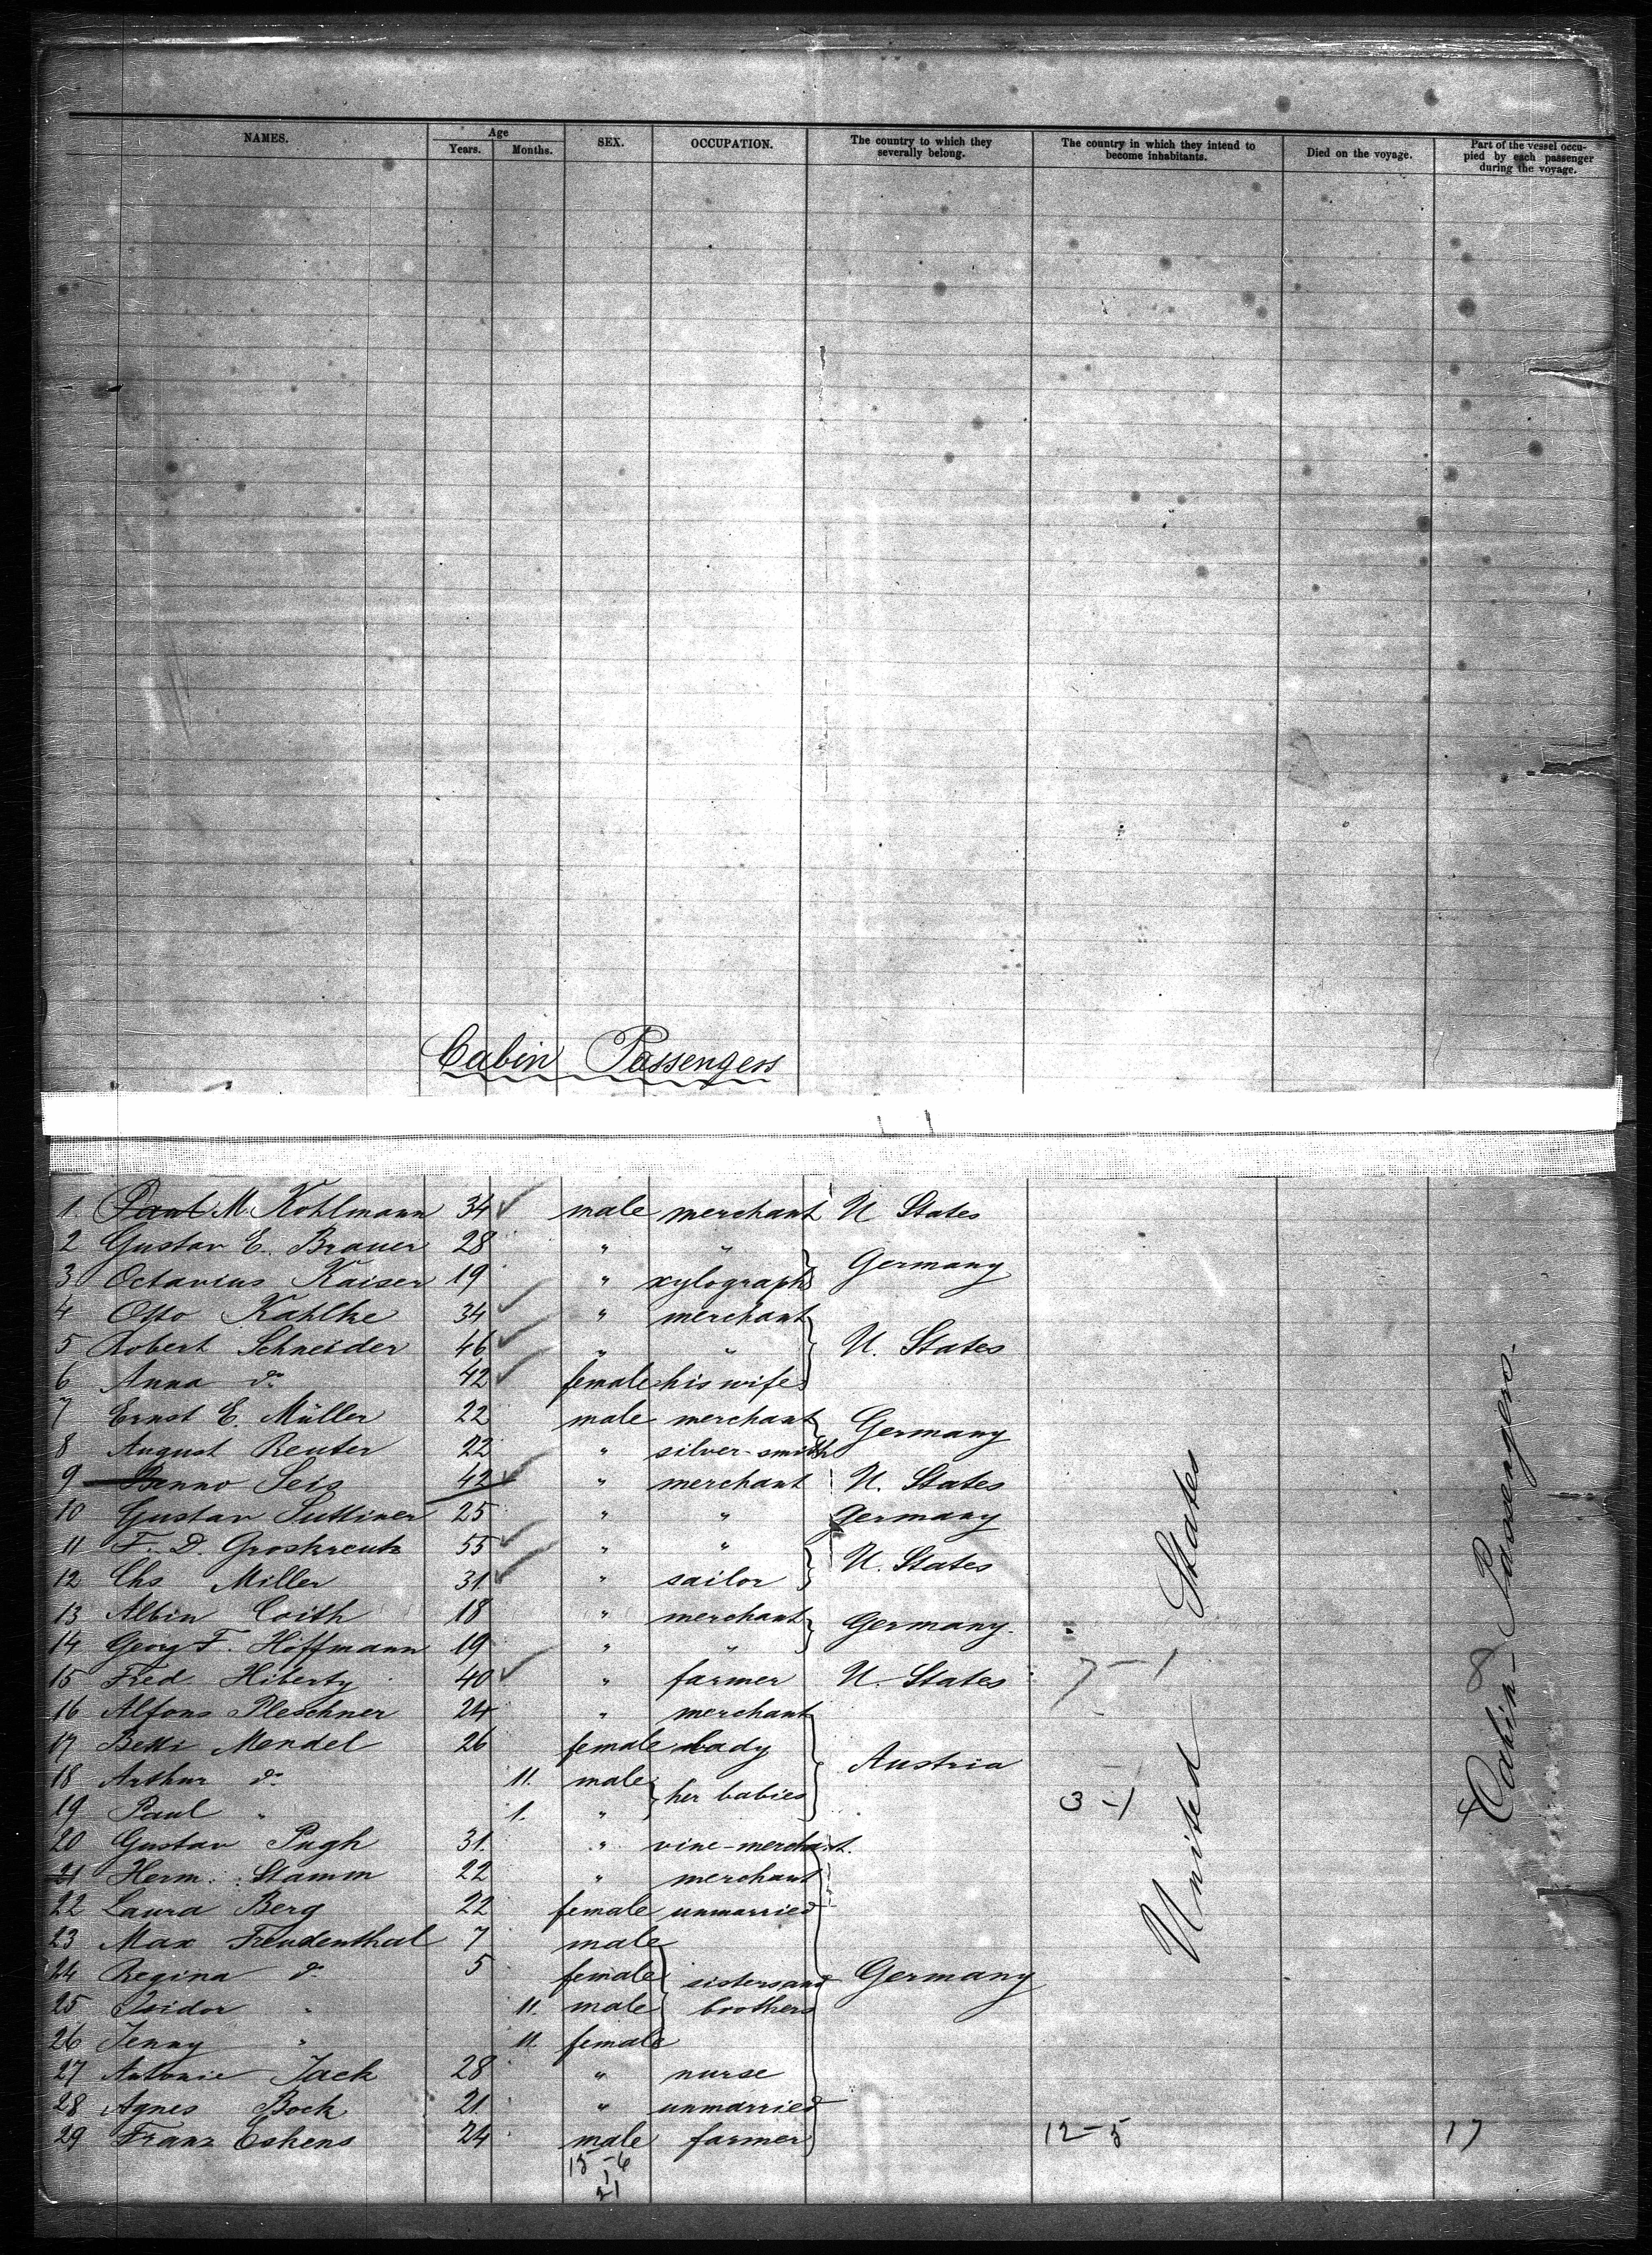 NAMES. Age Years. Months. SEX. OCCUPATION. The country to which they severally belong. The country in which they intend to become inhabitants. Died on the voyage. Part of the vessel occupied by each passenger during the voyage.
Cabin Passengers
1 Paul M. Kohlmann 34 male merchant U States
2 Gustav E. Brauer 28 " "
3 Octavius Kaiser 19 " xylograph Germany
4 Otto Kahlke 34 " merchant
5 Robert Schneider 46 " " U. States
6 Anna do 42 female his wife
7 Ernst E. Müller 22 male merchant
8 August Reuter 22 " silver-smith Germany
9 Benno Seis 42 " merchant U. States
10 Gustav Suttiner 25 " " Germany
11 F. D. Groskreutz 55 " "
12 Chs Miller 31 " sailor U. States
13 Albin Coith 18 " merchant
14 Georg F. Hoffmann 19 " " Germany.
15 Fred. Hiberty 40 " farmer U. States 7-1
16 Alfons Pleschner 24 " merchant
17 Betti Mendel 26 female lady
18 Arthur do 11. male Austria
19 Paul " 1. " her babies 3-1
20 Gustav Pugh 31. " vine-merchant.
21 Herm. Stamm 22 " merchant
22 Laura Berg 22 female unmarried
23 Max Freudenthal 7 male
24 Regina do 5 female sisters and Germany
25 Isidor " 11. male brothers
26 Jenny " 11. female
27 Antonie Jack 28 " nurse
28 Agnes Bock 21. " unmarried
29 Franz Eskens 24 male farmer 12-5 17
15-6
1
21
United States
Cabin-Passengers.
8